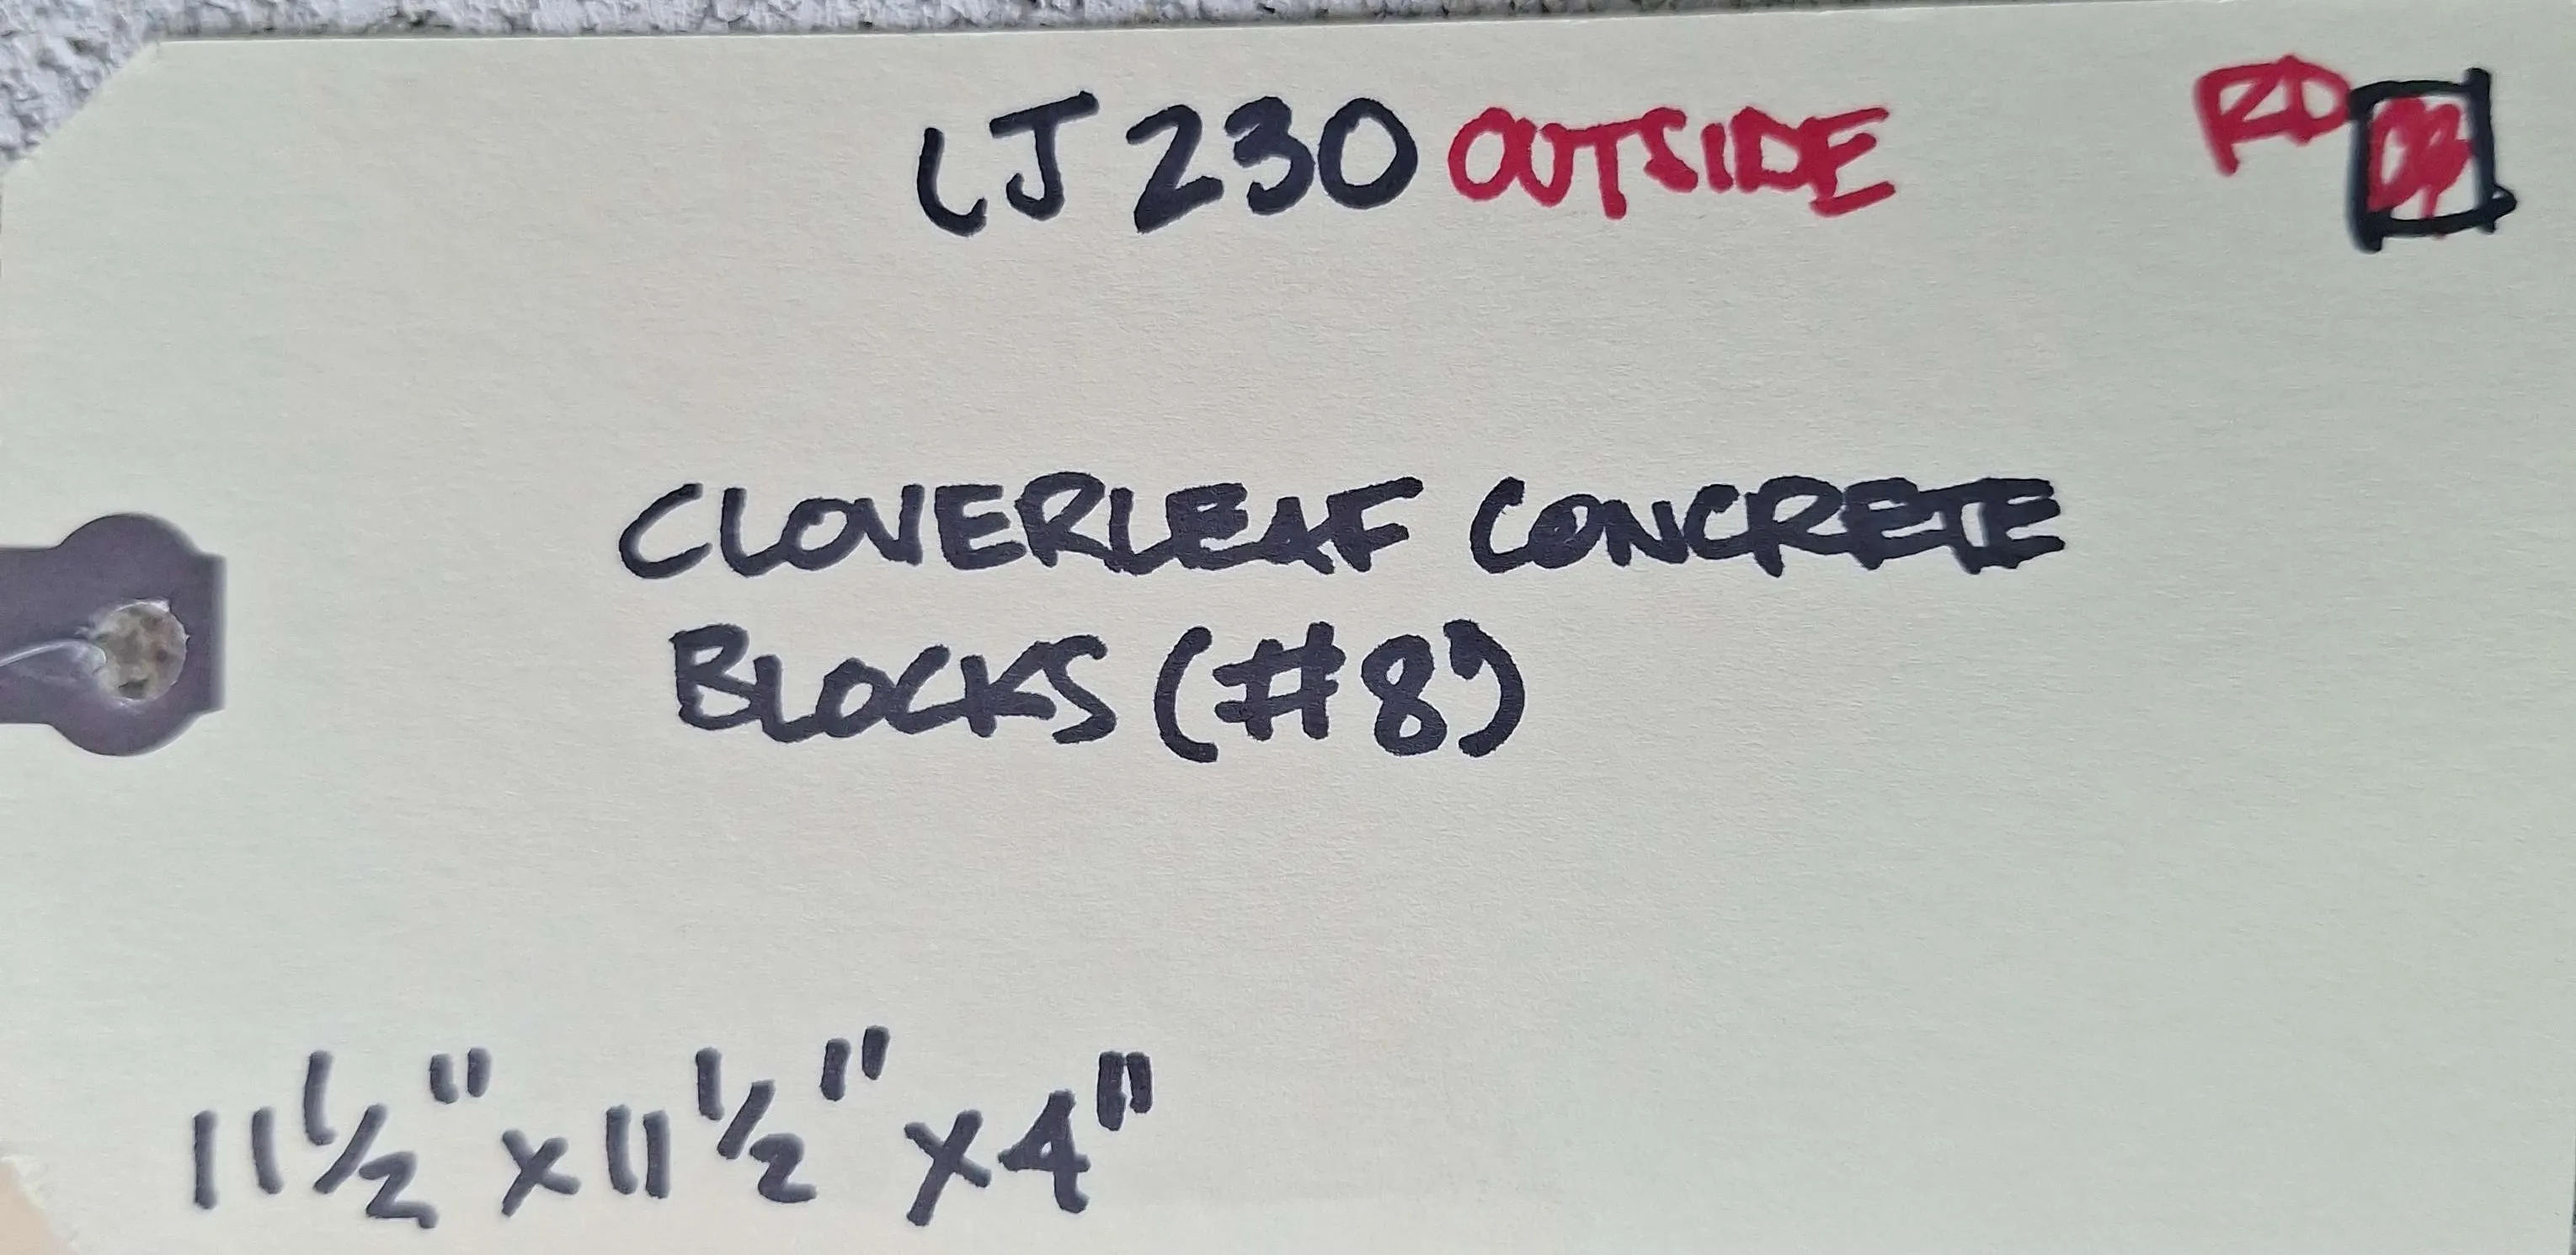 LJ 230 OUTSIDE RD
CLOVERLEAF CONCRETE
BLOCKS (#8)
11 1/2" x 11 1/2" x 4"